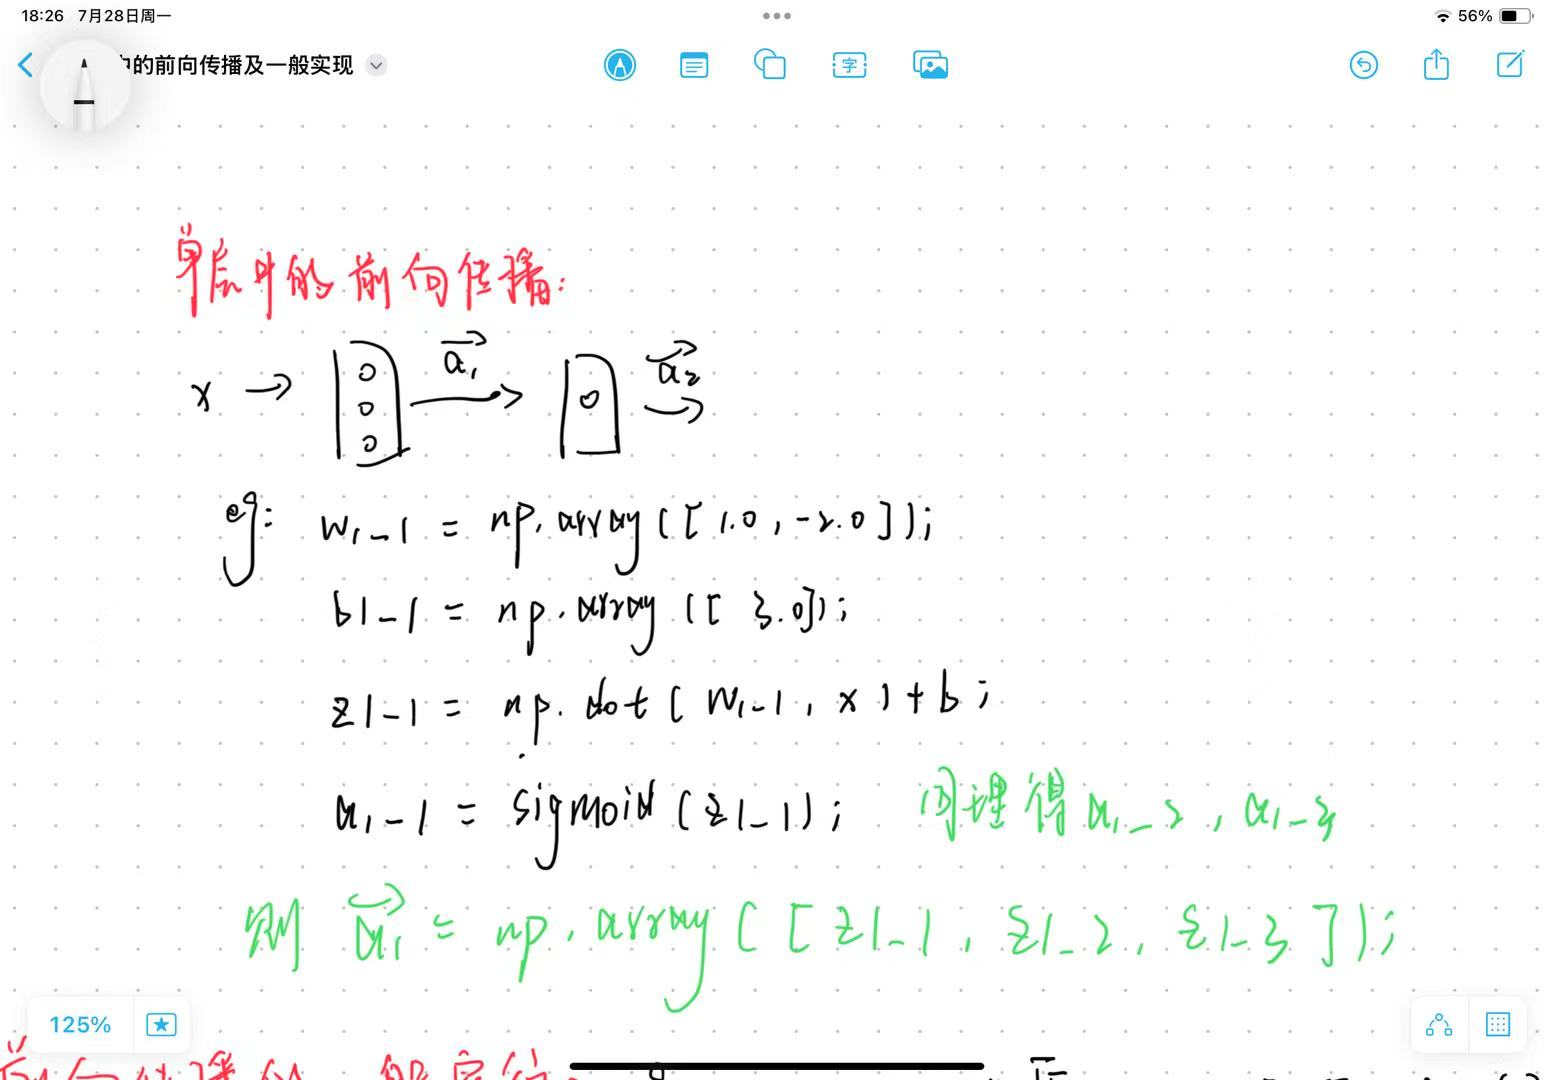 18:26 7月28日周一
56%
中的前向传播及一般实现
字
单层中的前向传播:
x → a₁ → a₂ →
eg: w₁-1 = np.array([1.0, -2.0]);
b1-1 = np.array([3.0]);
z1-1 = np.dot(w₁-1, x)+b;
a₁-1 = sigmoid(z1-1); 同理得 a₁-2, a₁-3
则 a₁ = np.array([z1-1, z1-2, z1-3]);
125%